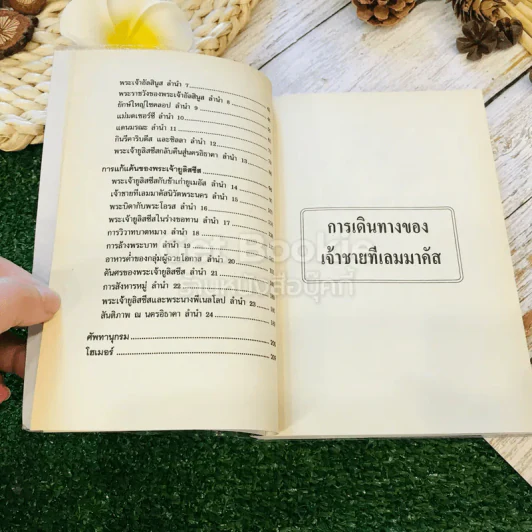 พระเจ้าอัลสินูส ลำนำ 7
พระราชวังของพระเจ้าอัลสินูส ลำนำ 8
ยักษ์ใหญ่ไซคลอป ลำนำ 9
แม่มดเซอร์ซี ลำนำ 10
แดนมรณะ ลำนำ 11
กินรีคาริบดีส และซิลลา ลำนำ 12
พระเจ้ายูลิสซีสกลับคืนสู่นครอิธาคา ลำนำ 13
การแก้แค้นของพระเจ้ายูลิสซีส
พระเจ้ายูลิสซีสกับข้าเก่ายูเมอัส ลำนำ 14
เจ้าชายทีเลมมาคัสนิวัตพระนคร ลำนำ 15
พระบิดากับพระโอรส ลำนำ 16
พระเจ้ายูลิสซีสในร่างขอทาน ลำนำ 17
การวิวาทบาดหมาง ลำนำ 18
การล้างพระบาท ลำนำ 19
อาหารค่ำของกลุ่มผู้ฉวยโอกาส ลำนำ 20
คันศรของพระเจ้ายูลิสซีส ลำนำ 21
การสังหารหมู่ ลำนำ 22
พระเจ้ายูลิสซีสและพระนางพีเนลโลป ลำนำ 23
สันติภาพ ณ นครอิธาคา ลำนำ 24
ศัพทานุกรม
โฮเมอร์
การเดินทางของ
เจ้าชายทีเลมมาคัส